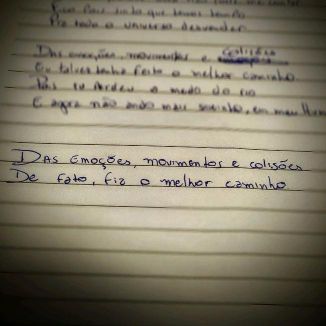 Pois sinto que temos tempo
Pra todo o universo desvendar
Das emoções, movimentos e colisões
Eu talvez tenha feito o melhor caminho
Pois tu perdeu o medo do
E agora não ando mais sozinho, em meu
Das emoções, movimentos e colisões
De fato, fiz o melhor caminho